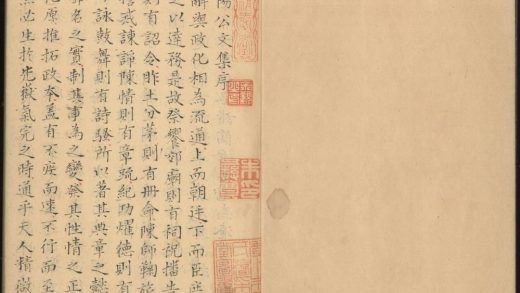 陽公文集序
辭與政化相為流通上而朝廷下而臣庶
之以達務是故祭饗郊廟則有祠祝播告
則有詔令胙土分茅則有冊命陳師鞠旅
誓戒諫諍陳情則有章疏紀功燿德則有
詠鼓舞則有詩騷所以著其典章之懿
聲名之實制其事為之變發其性情之正
化原推拓政本蓋有不疾而速不行而至
然必生於光嶽氣完之時通乎天人精微